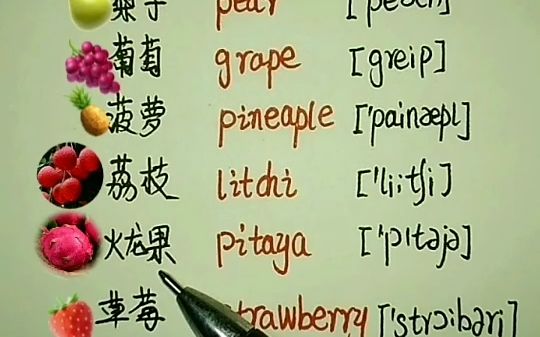 梨子 pear
葡萄 grape [greip]
菠萝 pineaple ['painæpl]
荔枝 litchi ['li:tʃi]
火龙果 pitaya ['pɪtəjə]
草莓 strawberry ['strɔ:bəri]